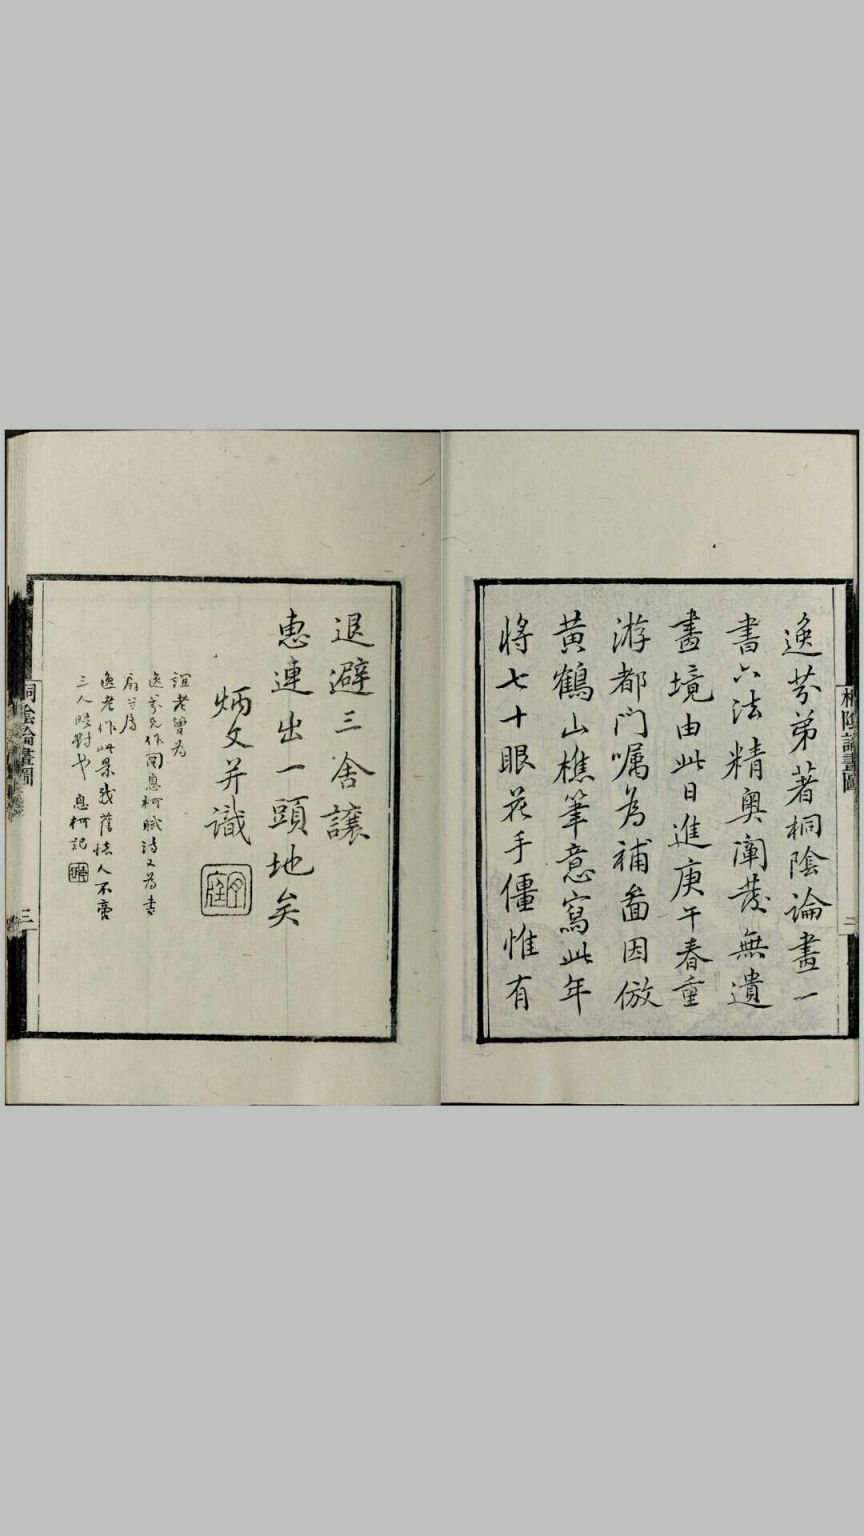 逸芬弟著桐陰論畫一
書六法精奧闡發無遺
畫境由此日進庚午春重
游都門囑為補圖因倣
黃鶴山樵筆意寫此年
將七十眼花手僵惟有
桐陰論畫圖
二
退避三舍讓
惠連出一頭地矣
炳文并識
誼老曾為
逸芬兄作圖息柯賦詩又為書
逸老作此景
三人晤對也 息柯記
桐陰論畫圖
三